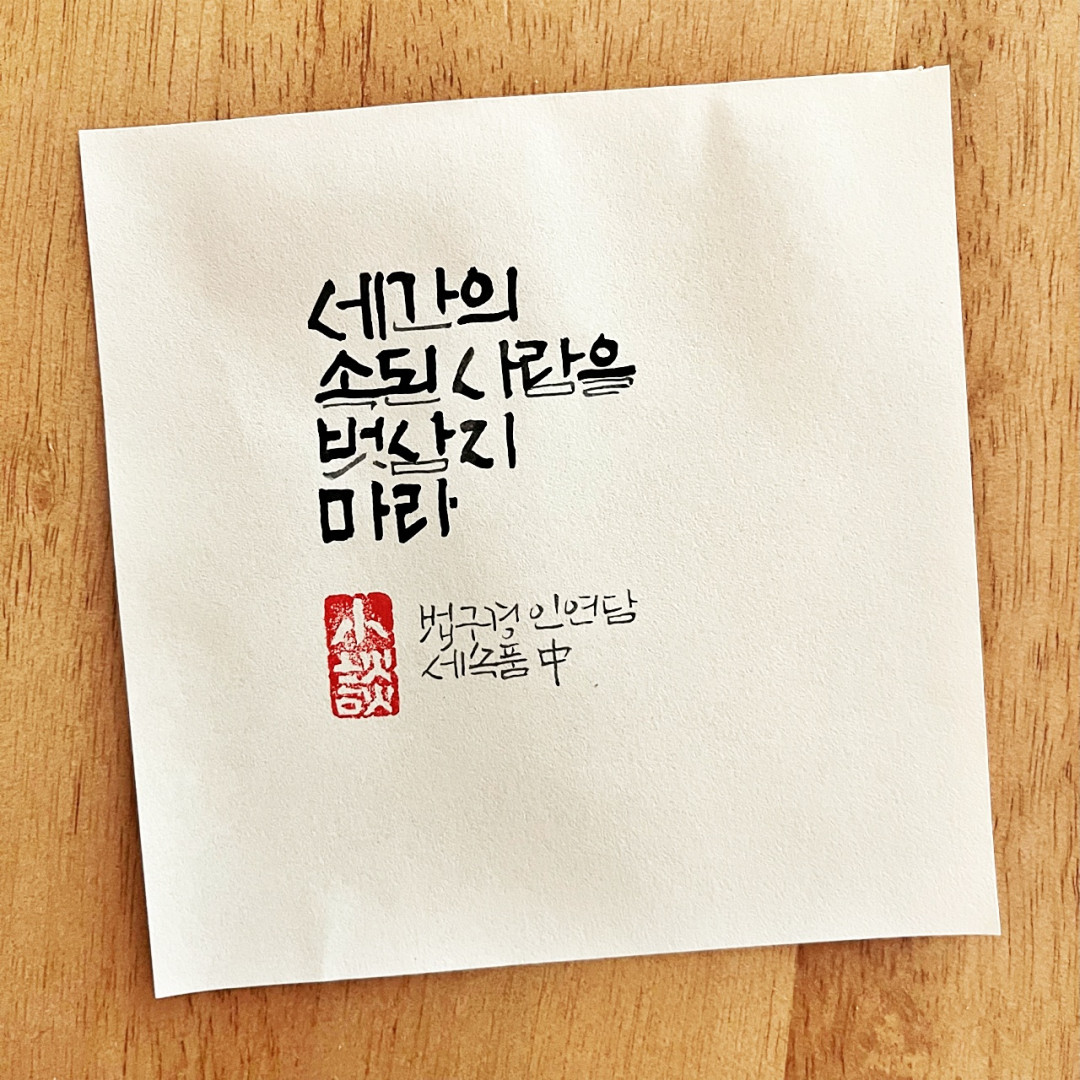 세간의
속된 사람을
벗삼지
마라
小談
법구경 인연담
세속품 中